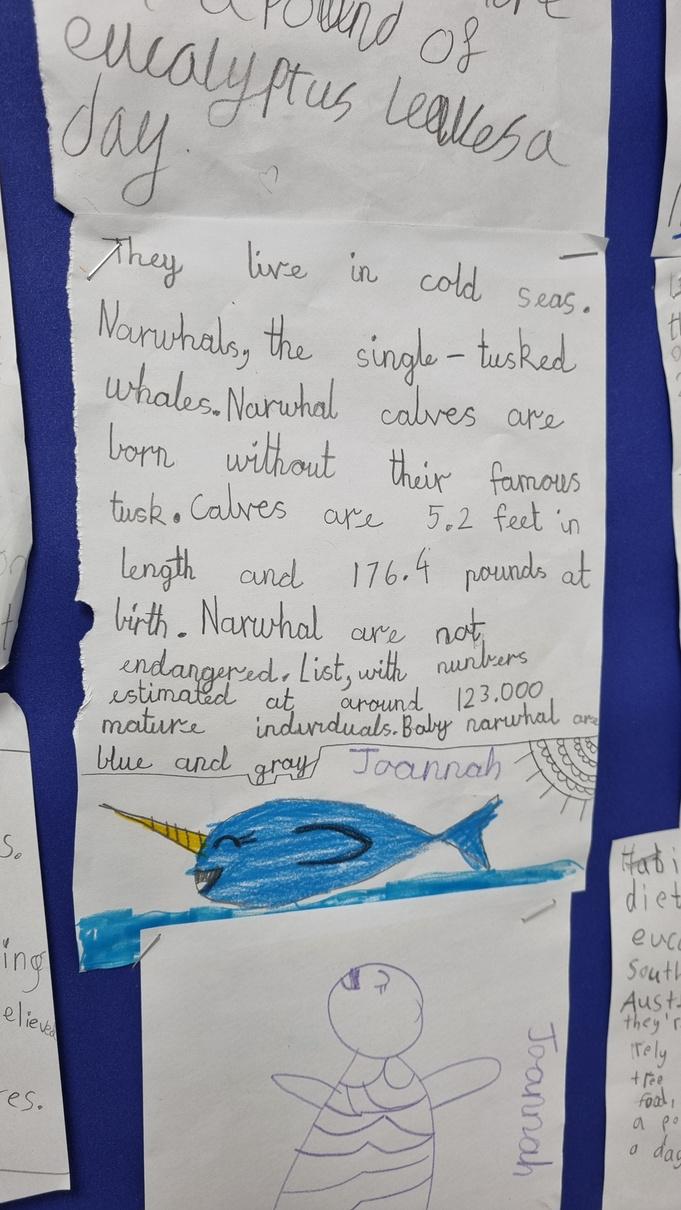 a pound of
eucalyptus leaves a
day.
They live in cold seas.
Narwhals, the single-tusked
whales. Narwhal calves are
born without their famous
tusk. Calves are 5.2 feet in
length and 176.4 pounds at
birth. Narwhal are not
endangered. List, with numbers
estimated at around 123.000
mature individuals. Baby narwhal are
blue and gray
Joannah
Joannah
s.
ing
elieved
es.
Habi
diet
euca
South
Aust
they'r
rely
tree
food,
a po
a day